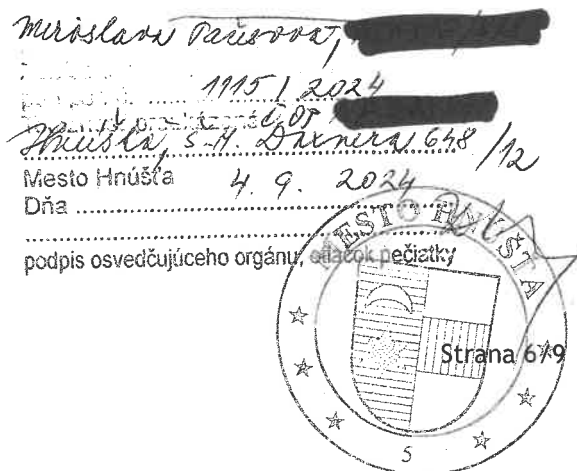 Miroslava
1115 / 2024
č. OP
Hnúšťa, Š. M. Daxnera 648/12
Mesto Hnúšťa 4. 9. 2024
Dňa
podpis osvedčujúceho orgánu, odtlačok pečiatky
MESTO HNÚŠŤA
Strana 6/9
5